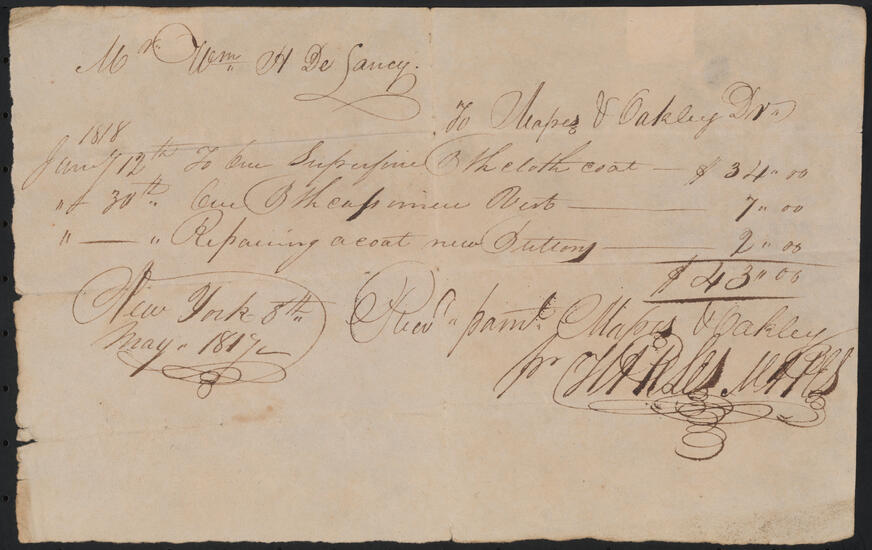 Mr. Wm. H De Lancy.
To Mapes & Oakley Dr.
1818
Jany 12th To One Superfine B th cloth coat — $ 34 " 00
" — 30th " One B th cassimere Vest — 7 " 00
" — " Repairing a coat new Buttons — 2 " 00
$ 43 " 00
New York 8th
May " 1817
Recd. pamt. Mapes & Oakley
pr Charles Mapes